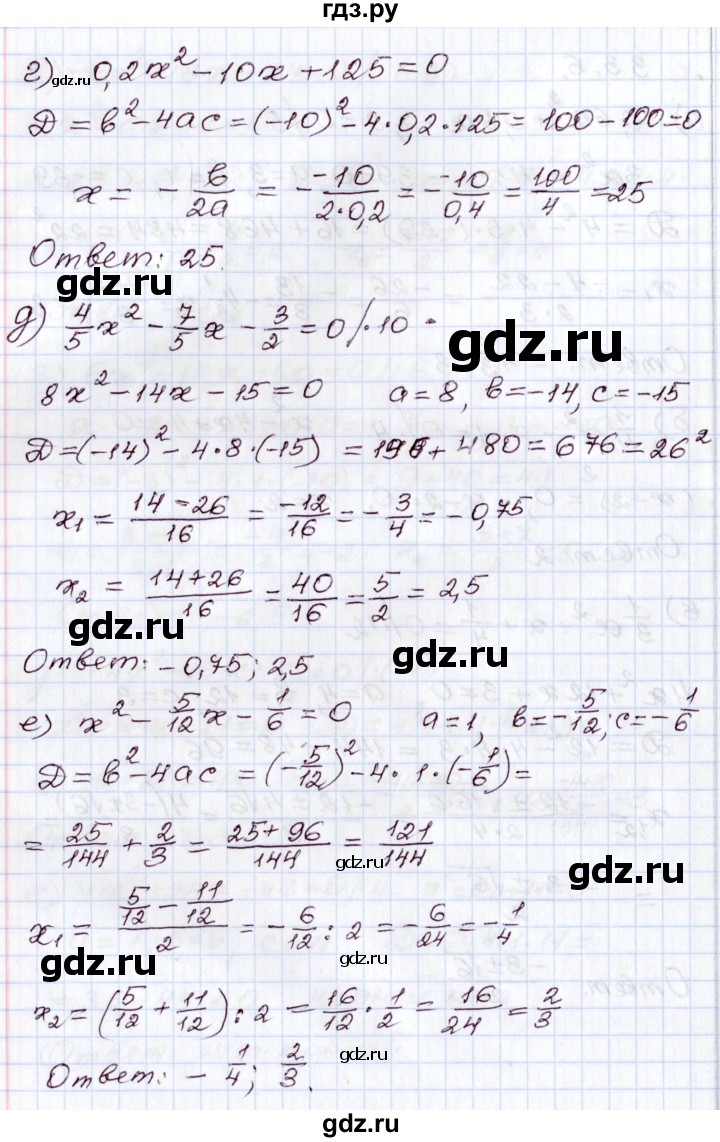 гдз.ру
г) 0,2x² − 10x + 125 = 0
gdz.ru
Д = в² − 4ас = (−10)² − 4·0,2·125 = 100 − 100 = 0
x = − в/2а = − −10/2·0,2 = − −10/0,4 = 100/4 = 25
Ответ: 25.
gdz.ru gdz.ru
д) 4/5 x² − 7/5 x − 3/2 = 0 /·10
gdz.ru
8x² − 14x − 15 = 0 a = 8, в = −14, с = −15
Д = (−14)² − 4·8·(−15) = 196 + 480 = 676 = 26²
x₁ = 14 − 26/16 = −12/16 = − 3/4 = − 0,75
gdz.ru
x₂ = 14 + 26/16 = 40/16 = 5/2 = 2,5
gdz.ru
Ответ: − 0,75; 2,5
gdz.ru
е) x² − 5/12 x − 1/6 = 0 a = 1, в = − 5/12; с = − 1/6
gdz.ru
Д = в² − 4ас = (− 5/12)² − 4·1·(− 1/6) =
= 25/144 + 2/3 = 25 + 96/144 = 121/144
gdz.ru gdz.ru
x₁ = 5/12 − 11/12/2 = − 6/12 : 2 = − 6/24 = − 1/4
gdz.ru gdz.ru
x₂ = (5/12 + 11/12) : 2 = 16/12 · 1/2 = 16/24 = 2/3
gdz.ru gdz.ru
Ответ: − 1/4; 2/3.
gdz.ru